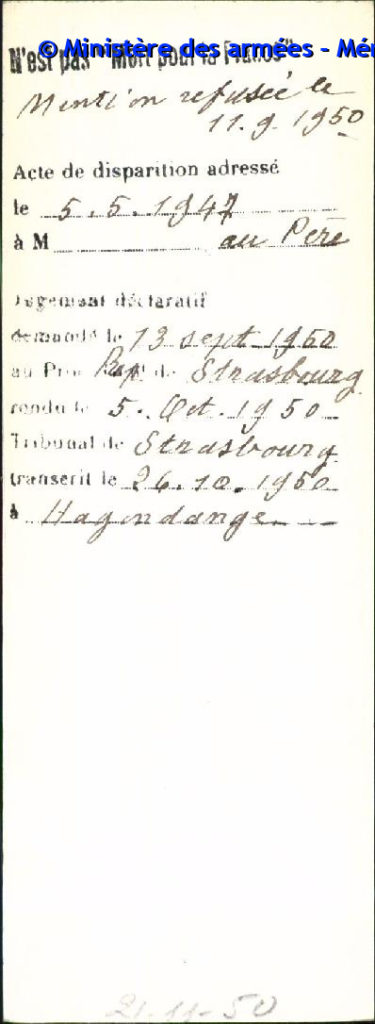 © Ministère des armées - Mé
N'est pas "Mort pour la France"
Mention refusée le
11.9.1950
Acte de disparition adressé
le 5.5.1947
à M au Père
Jugement déclaratif
demandé le 13 sept 1950
au Proc Rép de Strasbourg
rendu le 5. Oct. 1950
Tribunal de Strasbourg
transcrit le 26.10.1950
à Hagondange
21-11-50